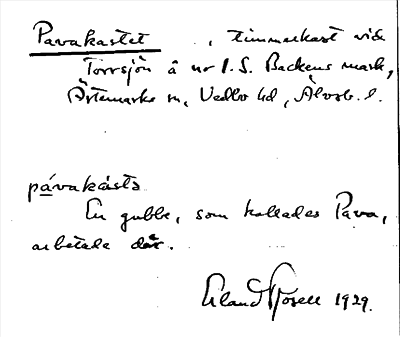 Pavakastet , timmerkast vid
Torrsjön å nr 1. S. Backens mark,
Ärtemarks sn, Vedbo hd, Älvsb. l.
påvakástə
En gubbe, som kallades Pava,
arbetade där.
Erland Rosell 1929.